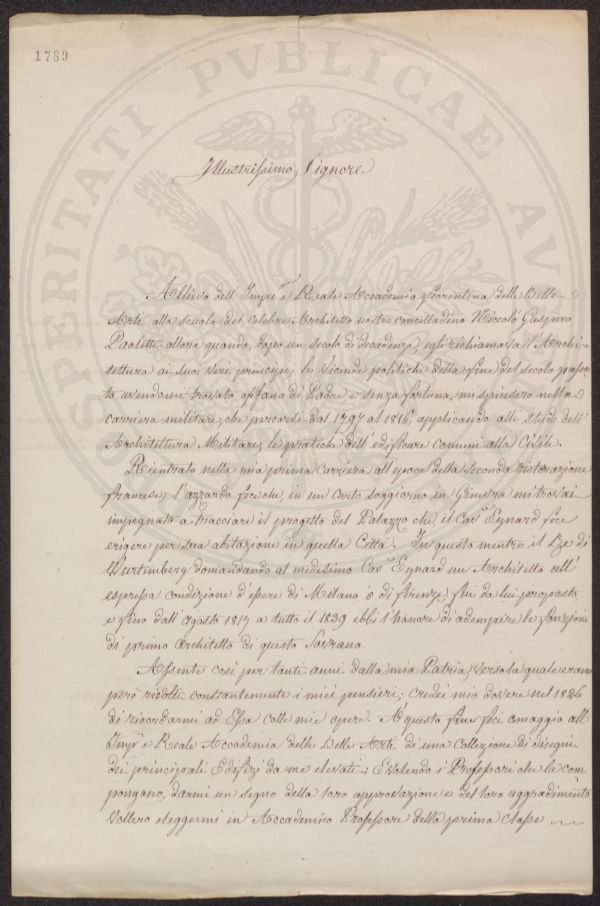 1789
PROSPERITATI PUBLICAE AU
Illustrissimo Signore
Allievo dell'Imp.e e Reale Accademia Fiorentina delle Belle
Arti alla scuola del celebre Architetto nostro concittadino Niccolò Gaspero
Paoletti allora quando, dopo un secolo di decadenza, egli richiamava l'Archi-
tettura ai suoi veri principj; le vicende politiche della fine del secolo passa-
to avendomi trovato orfano di Padre e senza fortuna, mi spinsero nella
carriera militare, che percorsi dal 1797 al 1816, applicando alli studi dell'
Architettura Militare, le pratiche dell'edificare comuni alla Civile.
Rientrato nella mia prima Carriera all'epoca della seconda ristorazione
francese; l'azzardo fece che, in un corto soggiorno in Ginevra mi trovai
impegnato a tracciare il progetto del Palazzo che, il Cav. Eynard fece
erigere per sua abitazione in quella Città. In questo mentre il Re di
Wurtemberg domandando al medesimo Cav. Eynard un Architetto coll'
espressa condizione d'essere di Milano o di Firenze, fui da lui proposto
e fino dall'agosto 1817 a tutto il 1839 ebbi l'honore di adempire le funzioni
di primo Architetto di questo Sovrano
Assente così per tanti anni dalla mia Patria, verso la quale erano
però rivolti constantemente i miei pensieri; credei mio dovere nel 1826
di ricordarmi ad Essa colle mie opere. A questo fine feci omaggio all'
Imp.e e Reale Accademia delle Belle Arti di una Collezione di disegni
dei principali Edifizi da me elevati; E volendo i Professori che la com
pongano, darmi un segno della loro approvazione e del loro aggradimento
vollero eleggermi in Accademico Professore della prima Classe